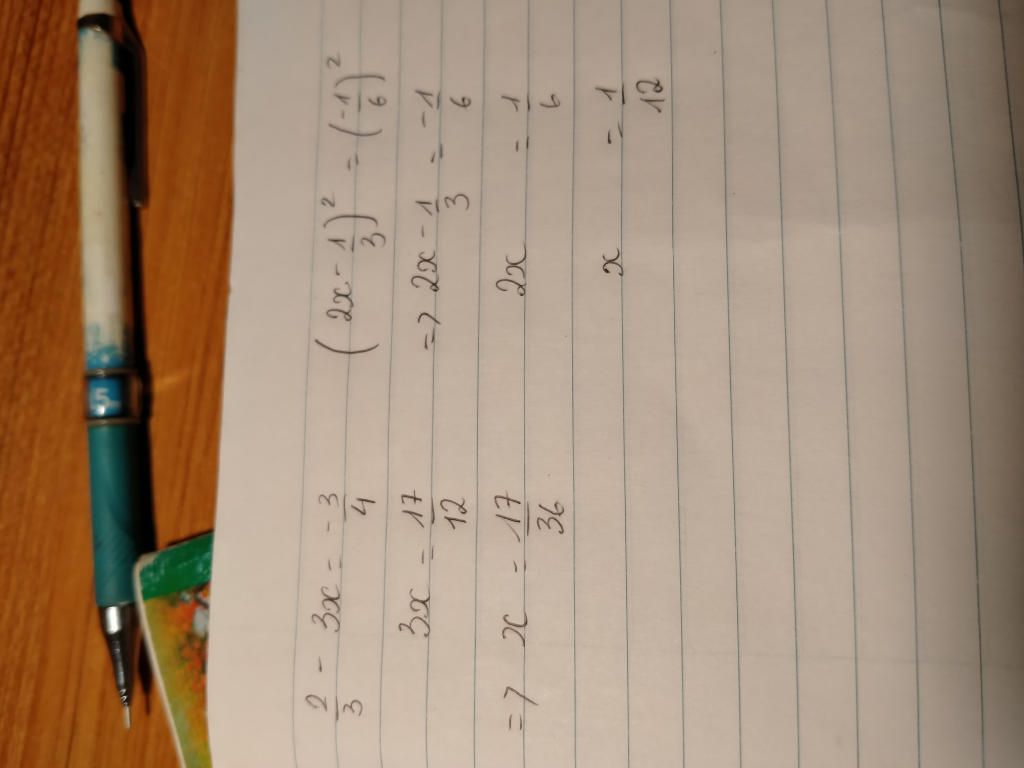 2/3 - 3x = -3/4
3x = 17/12
=> x = 17/36
(2x - 1/3)² = (-1/6)²
=> 2x - 1/3 = -1/6
2x = 1/6
x = 1/12
5